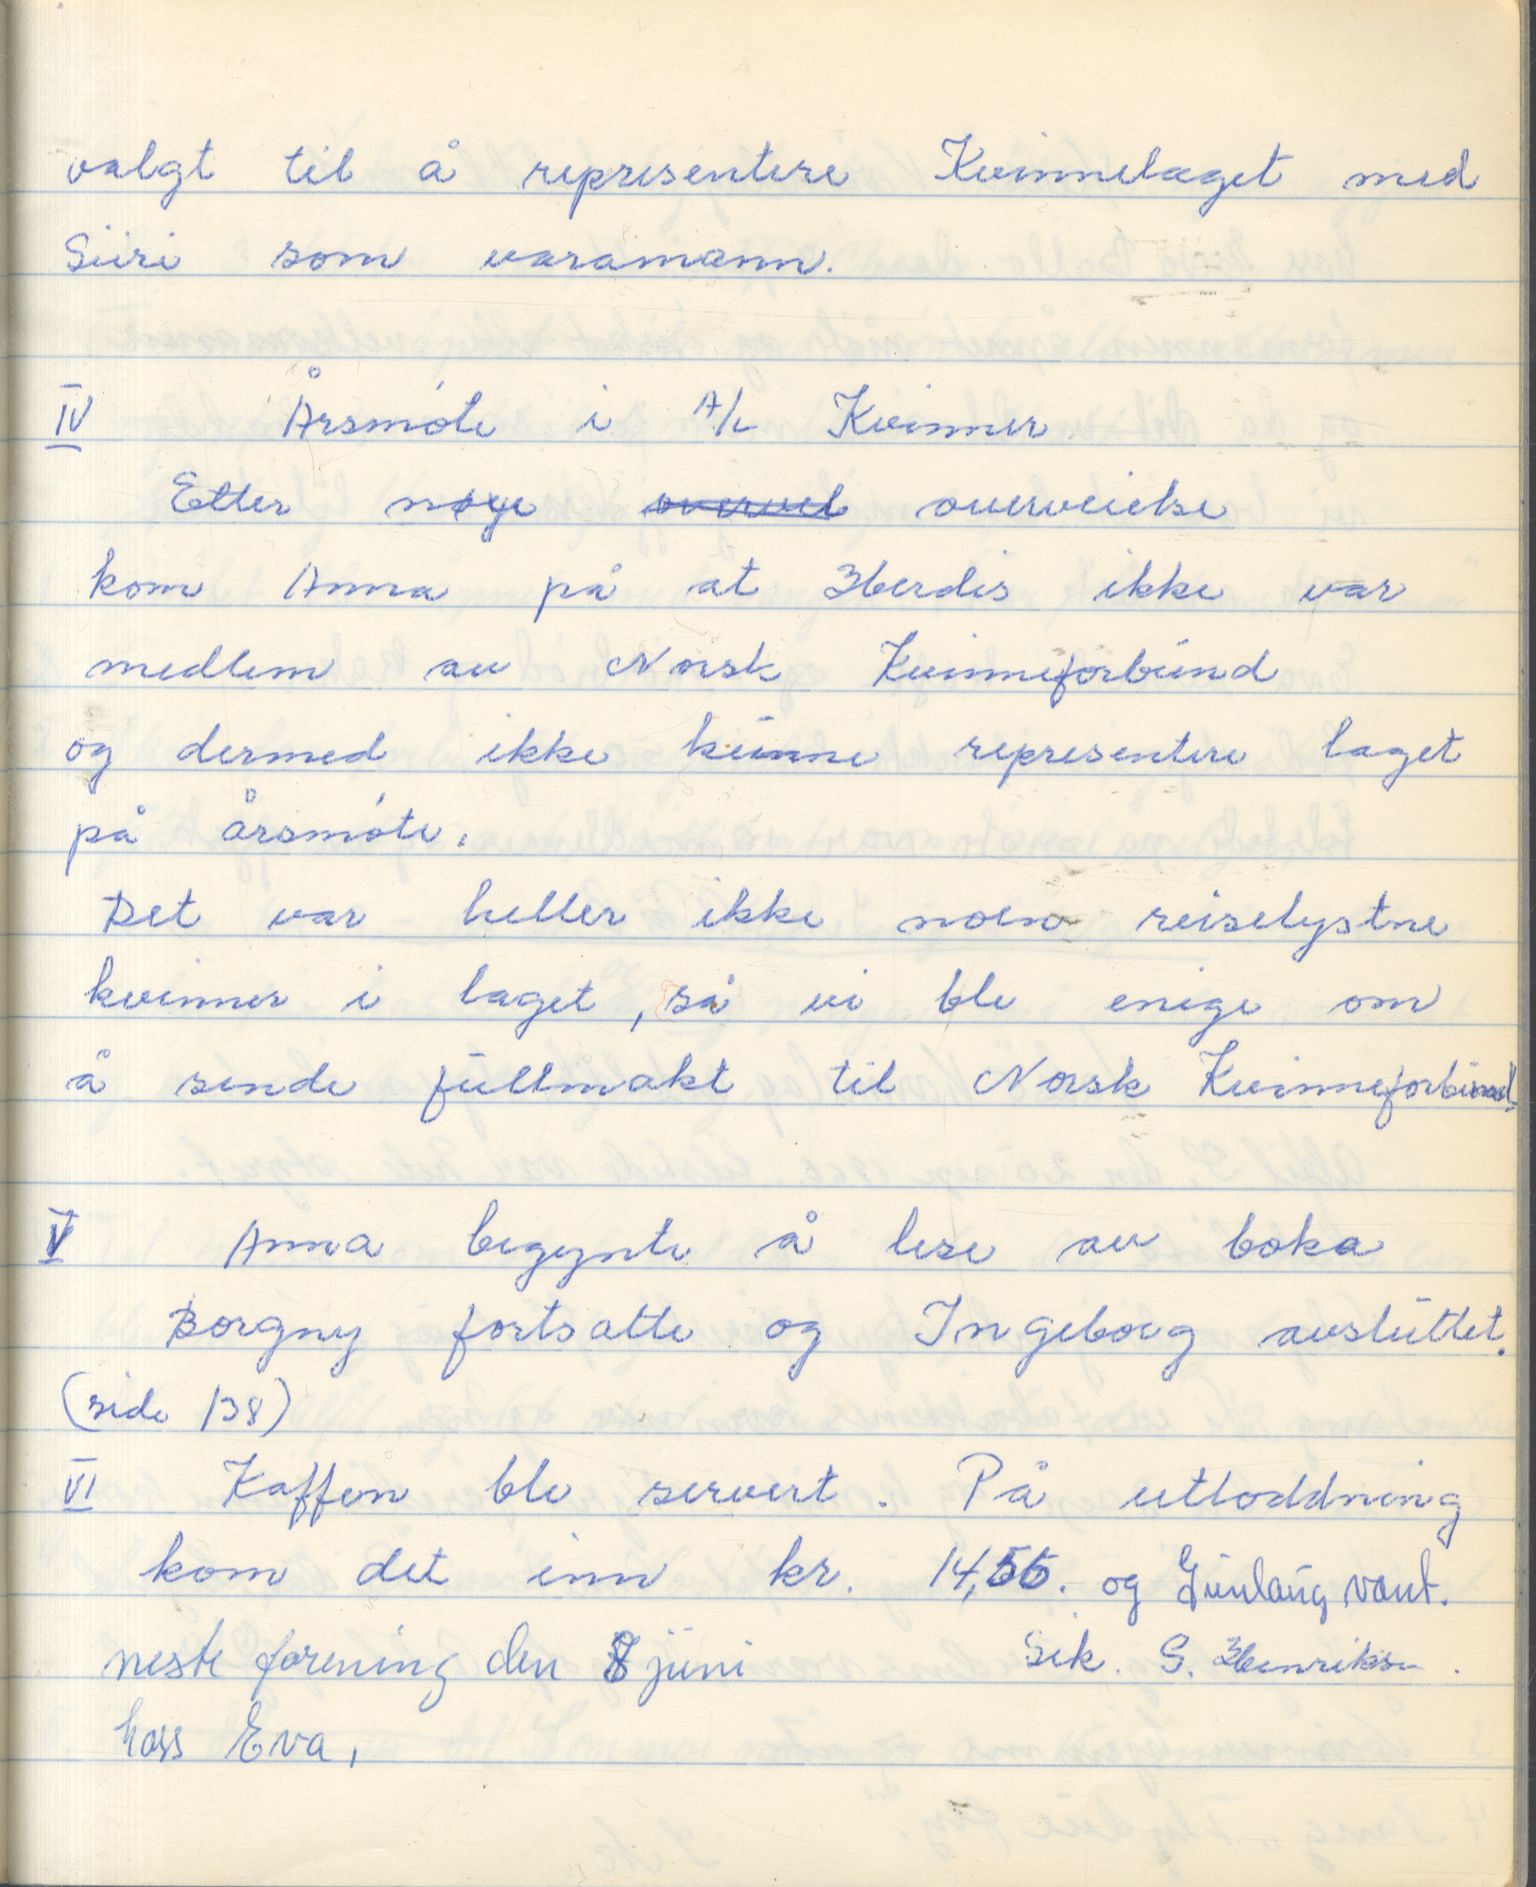 valgt til å representere Kvinnelaget med
Siiri som varamann.
IV Årsmöte i A/L Kvinner
Etter nøye overvel overveielse
kom Anna på at Herdis ikke var
medlem av Norsk Kvinneforbund
og dermed ikke kunne representere laget
på årsmöte.
Det var heller ikke noen reiselystne
kvinner i laget, så vi ble enige om
å sende fullmakt til Norsk Kvinneforbund.
V Anna begynte å lese av boka
Borgny fortsatte og Ingeborg avsluttet.
(side 138)
VI Kaffen ble servert. På utloddning
kom det inn kr. 14,55. og Gunlaug vant.
neste forening den 8 juni Sek. S. Henriksen.
hoss Eva,